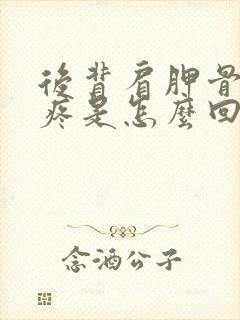 後背肩胛骨
疼是怎麼回
念酒公子